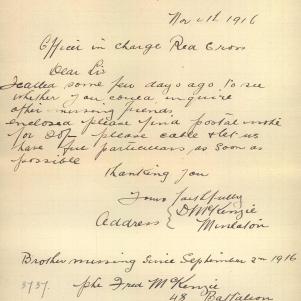 Nov 11th 1916
Officer in charge Red Cross
Dear Sir
I called some few days ago to see
whether you could inquire
after missing friends
enclosed please find postal note
for 20/- please cable & let us
have full particulars as soon as
possible
thanking you
Yours faithfully
D McKenzie
Address Minlaton
Brother missing since September 2nd 1916
3737. pte Fred McKenzie
48 Battalion